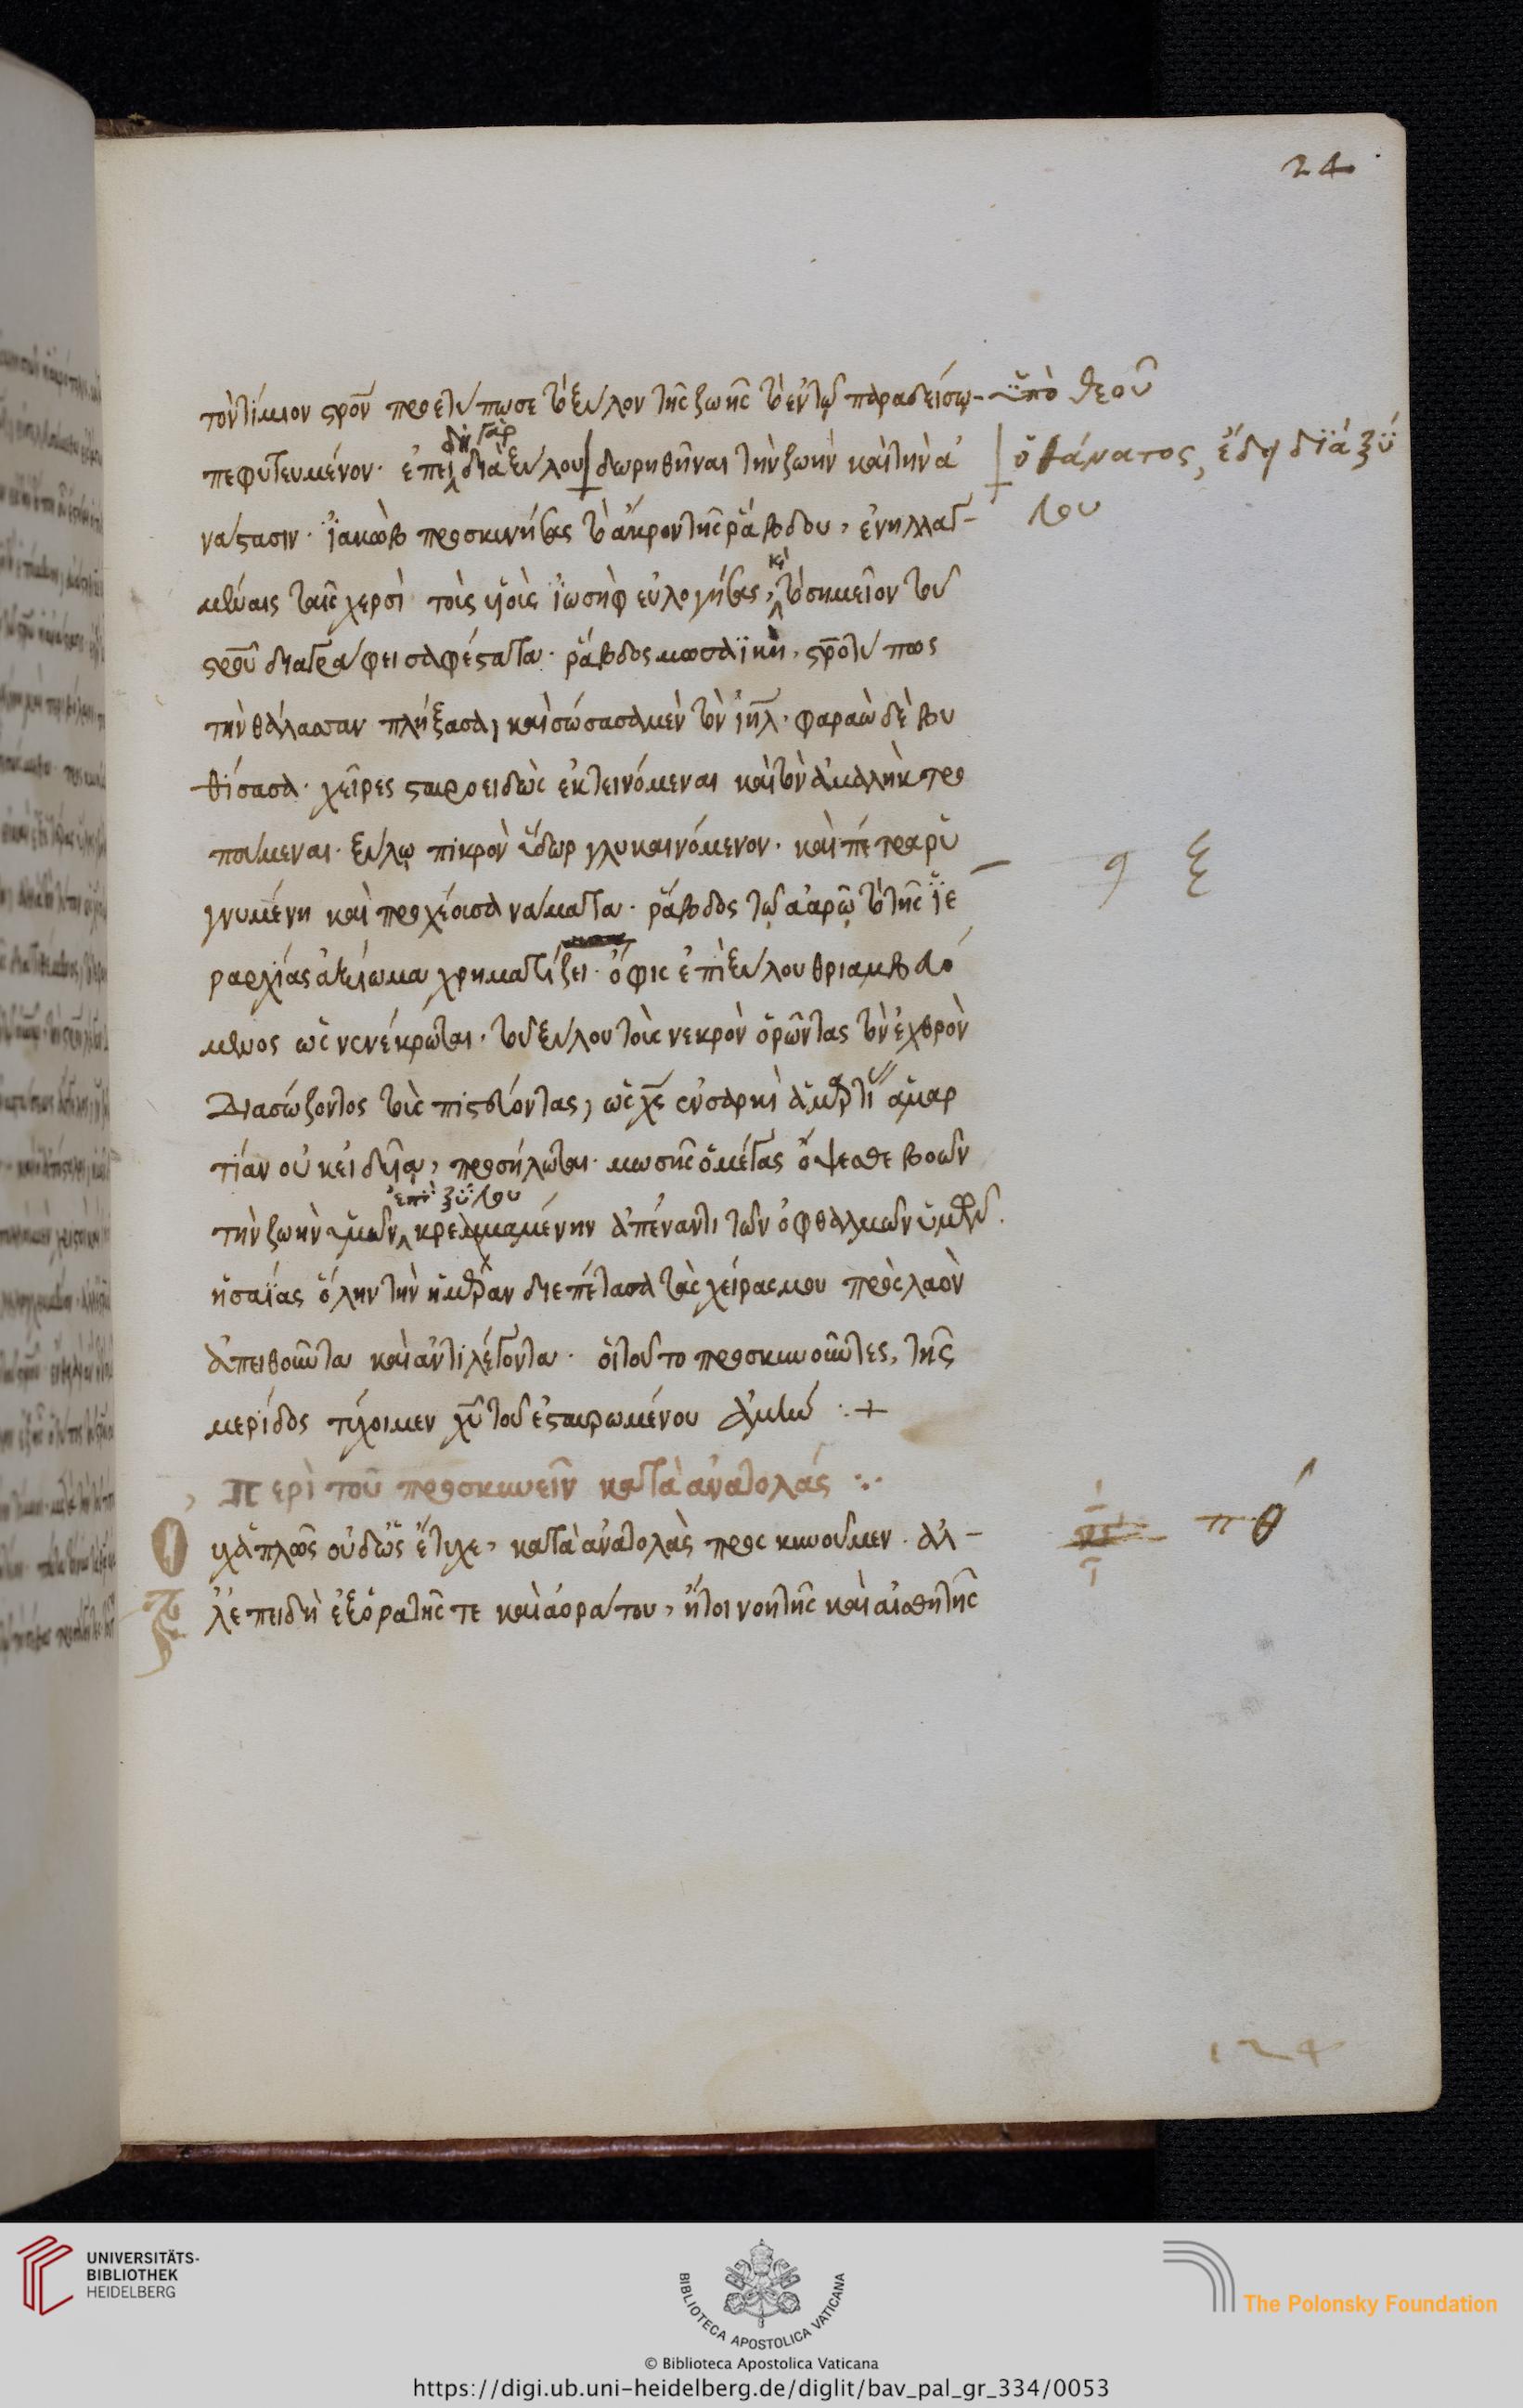 24
τὸν τίμιον σρον̅ προετύπωσε τὸ ξύλον τῆς ζωῆς τὸ ἐν τῷ παραδείσῳ - ὑπὸ θεοῦ
πεφυτευμένον· ἐπεὶ δὴ γὰρ διὰ ξύλου δωρηθῆναι τὴν ζωὴν καὶ τὴν ἀ
ὁ θάνατος, ἔδει διὰ ξύ
λου
νάστασιν· ἰακὼβ προσκυνήσας τὸ ἄκρον τῆς ῥάβδου, ἐνηλλαγ-
μέναις ταῖς χερσὶ τοὺς υἱοὺς ἰωσὴφ εὐλογήσας, κὶ τὸ σημεῖον τοῦ
σρου̅ διαγράφει σαφέστατα· ῥάβδος μωσαϊκὴ, σρο̅τύπως
τὴν θάλασσαν πλήξασα, καὶ σώσασα μὲν τὸν ιη̅λ· φαραὼ δὲ βυ
θίσασα· χεῖρες σταυροειδῶς ἐκτεινόμεναι καὶ τὸν ἀμαλὴκ τρο
πούμεναι· ξύλῳ πικρὸν ὕδωρ γλυκαινόμενον· καὶ πέτρα ῥη
γνυμένη καὶ προχέουσα νάματα· ῥάβδος τῷ ἀαρῶν τὸ τῆς ἱε
ραρχίας ἀξίωμα χρηματίζει· ὄφις ἐπὶ ξύλου θριαμβευό
μενος ὡς νενέκρωται· τοῦ ξύλου τοὺς νεκρὸν ὁρῶντας τὸν ἐχθρὸν
διασώζοντος τοὺς πιστεύοντας, ὡς χς̅ ἐν σαρκὶ ἁμαρτί ἁμαρ
τίαν οὐκ εἰδυῖα, προσήλωται· μωσῆς ὁ μέγας ὄψεσθε βοῶν
τὴν ζωὴν ὑμῶν ἐπὶ ξύλου κρεμαμένην ἀπέναντι τῶν ὀφθαλμῶν ὑμῶν.
ἡσαΐας ὅλην τὴν ἡμέραν διεπέτασα τὰς χεῖρας μου πρὸς λαὸν
ἀπειθοῦντα καὶ ἀντιλέγοντα· οἱ τοῦτο προσκυνοῦντες, τῆς
μερίδος τύχοιμεν χυ̅ τοῦ ἐσταυρωμένου ἀμήν :+
Περὶ τοῦ προσκυνεῖν κατὰ ἀνατολάς :·
Οὐχ ἁπλῶς οὐδ' ὡς ἔτυχε, κατὰ ἀνατολὰς προσκυνοῦμεν· ἀλ-
πθ
λ' ἐπειδὴ ἐξ ὁρατῆς τε καὶ ἀοράτου, ἤτοι νοητῆς καὶ αἰσθητῆς
124
UNIVERSITÄTS-
BIBLIOTHEK
HEIDELBERG
BIBLIOTECA APOSTOLICA VATICANA
The Polonsky Foundation
© Biblioteca Apostolica Vaticana
https://digi.ub.uni-heidelberg.de/diglit/bav_pal_gr_334/0053